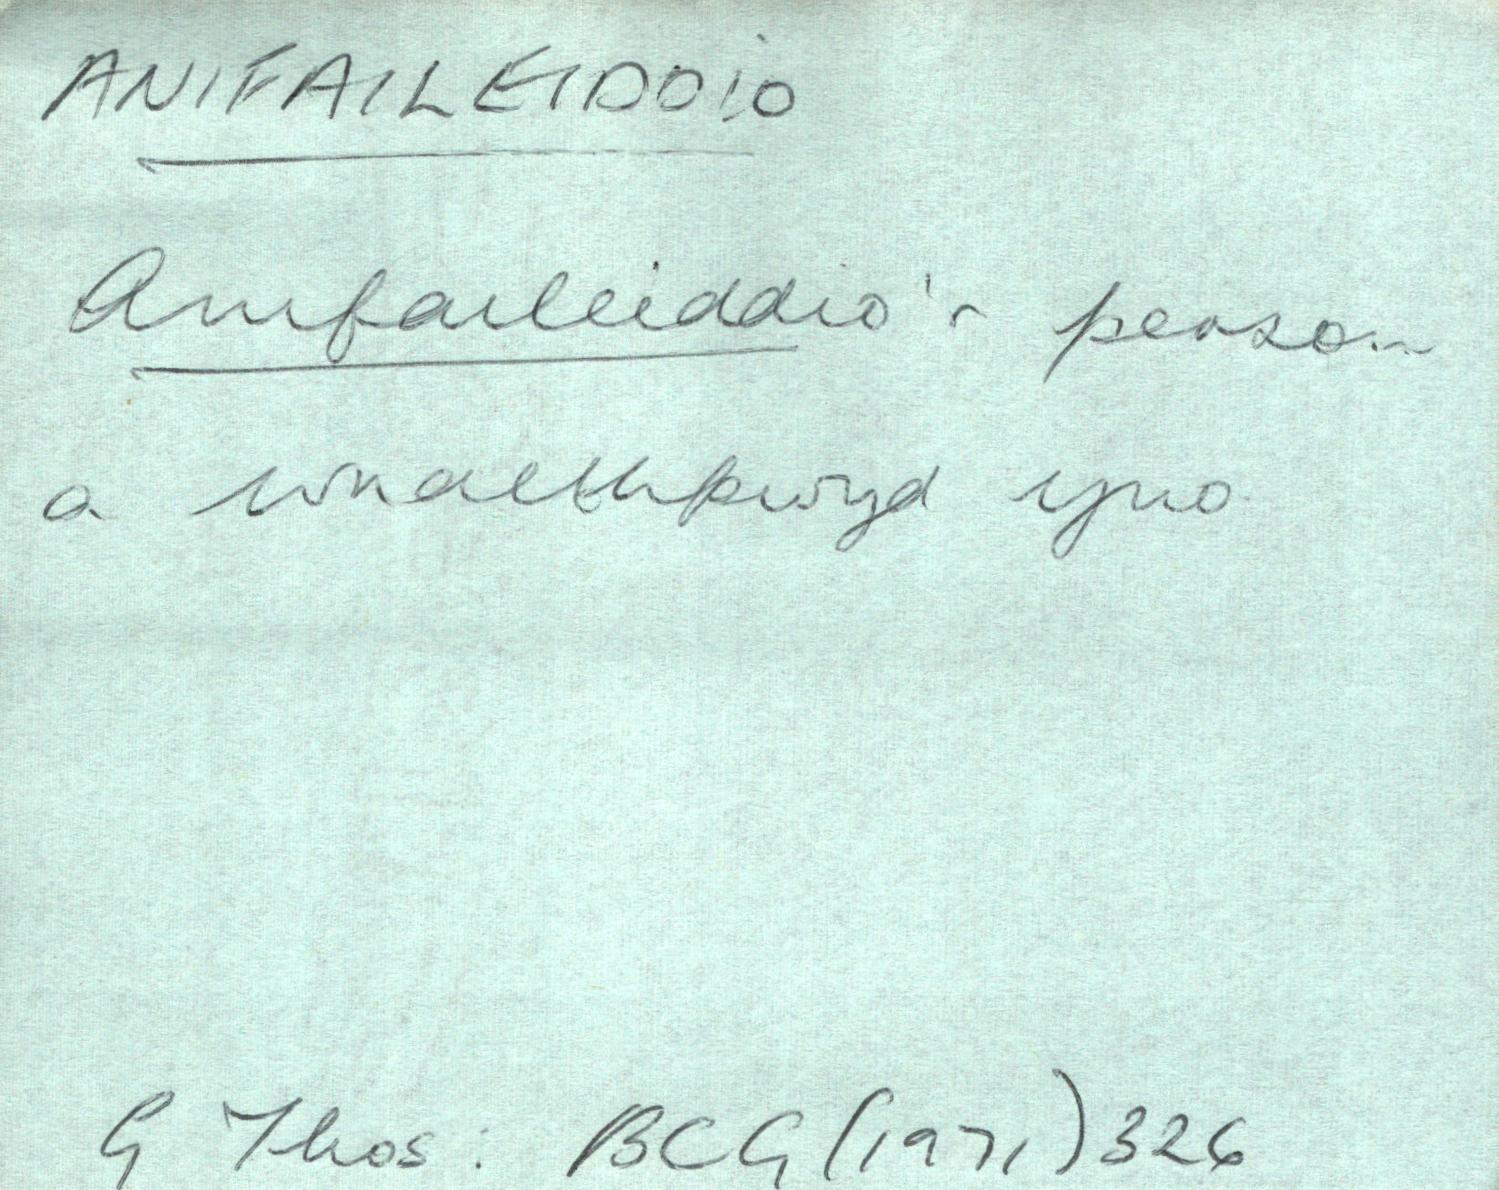 ANIFAILEIDDIO
Anifaileiddio'r person
a wnaethpwyd yno
G Thos: BCG (1971) 326